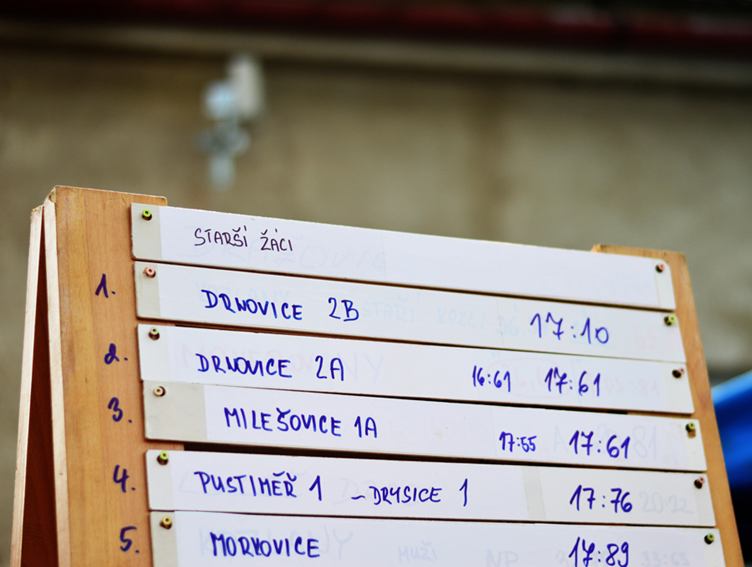 STARŠÍ ŽÁCI
1. DRNOVICE 2B 17:10
2. DRNOVICE 2A 16:61 17:61
3. MILEŠOVICE 1A 17:55 17:61
4. PUSTIMĚŘ 1 - DRYSICE 1 17:76
5. MORKOVICE 17:89